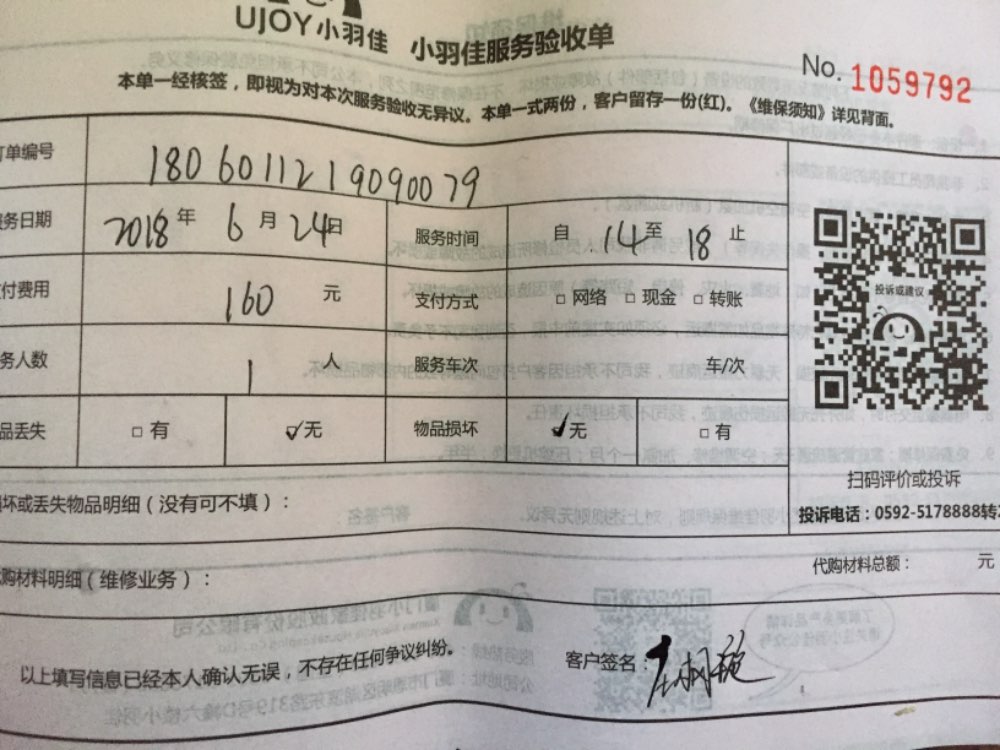 UJOY小羽佳 小羽佳服务验收单
No. 1059792
本单一经核签，即视为对本次服务验收无异议。本单一式两份，客户留存一份(红)。《维保须知》详见背面。
订单编号 1806011219090079
服务日期 2018年6月24日 服务时间 自 14 至 18 止
付费用 160 元 支付方式 □网络 □现金 □转账
务人数 1 人 服务车次 车/次
品丢失 □有 ☑无 物品损坏 ☑无 □有
投诉或建议
扫码评价或投诉
投诉电话：0592-5178888转
坏或丢失物品明细（没有可不填）：
购材料明细（维修业务）： 代购材料总额： 元
以上填写信息已经本人确认无误，不存在任何争议纠纷。 客户签名：